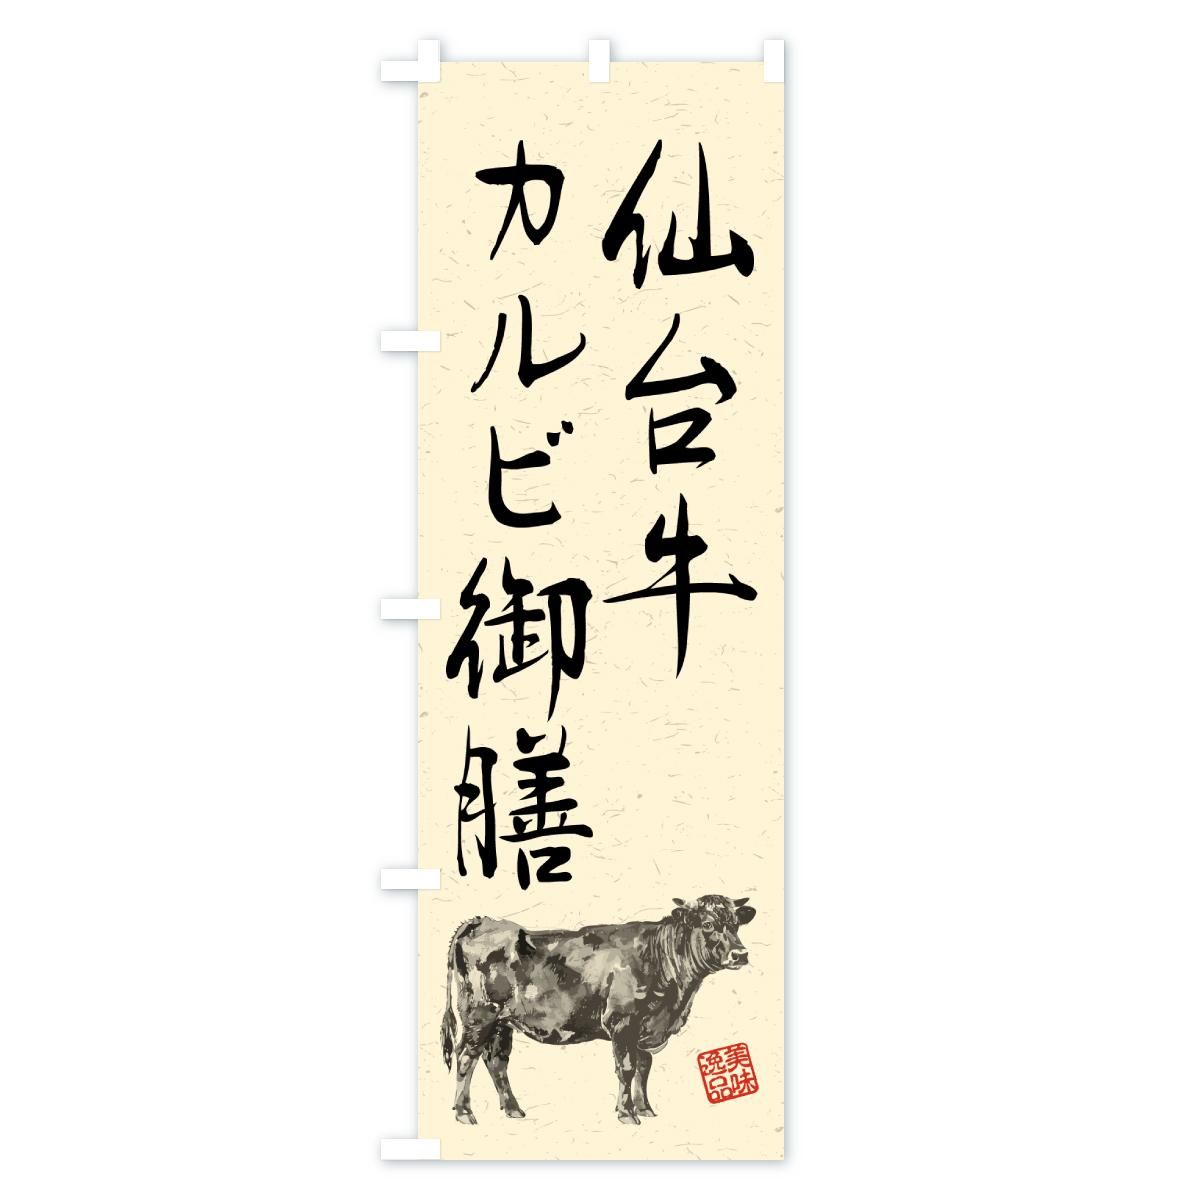 仙台牛
カルビ御膳
美味
逸品